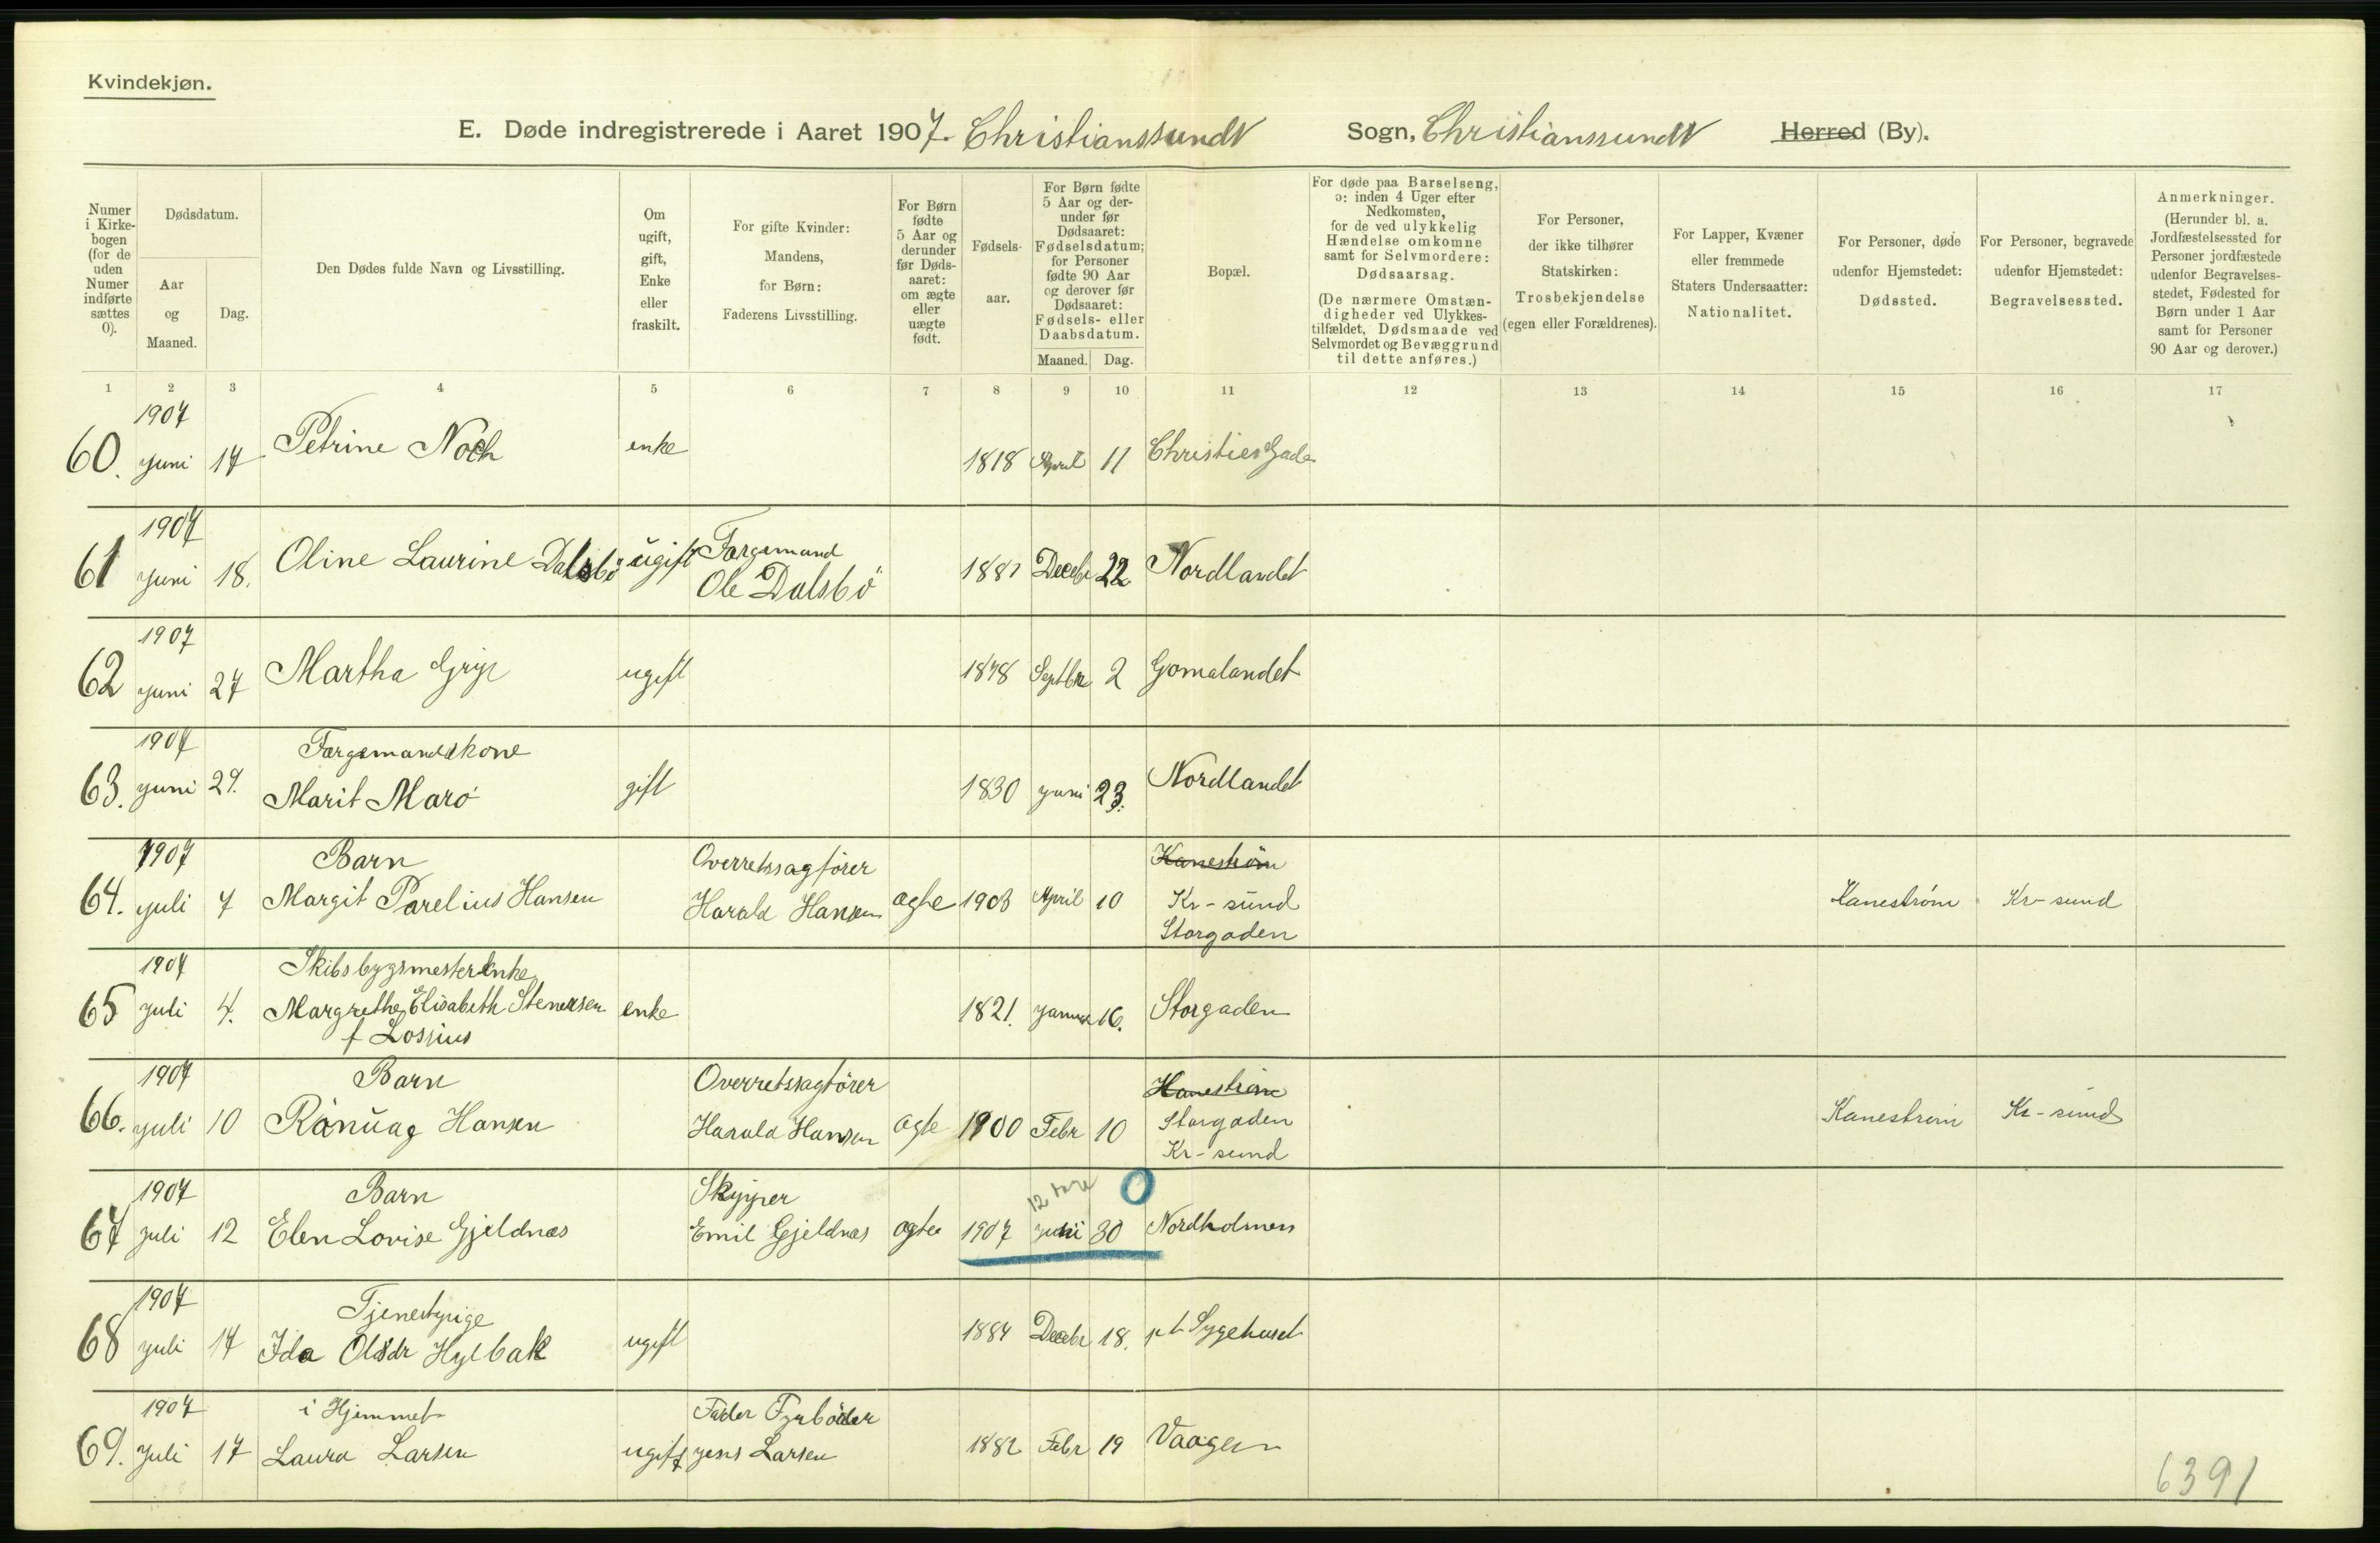 Kvindekjøn.
E. Døde indregistrerede i Aaret 1907. Christianssund Sogn, Christianssund Herred (By).
Numer i Kirkebogen (for de uden Numer indførte sættes 0).
Dødsdatum.
Aar og Maaned.
Dag.
Den Dødes fulde Navn og Livsstilling.
Om ugift, gift, Enke eller fraskilt.
For gifte Kvinder: Mandens, for Børn: Faderens Livsstilling.
For Børn fødte 5 Aar og derunder før Dødsaaret: om ægte eller uægte født.
Fødselsaar.
For Børn fødte 5 Aar og derunder før Dødsaaret: Fødselsdatum; for Personer fødte 90 Aar og derover før Dødsaaret: Fødsels- eller Daabsdatum.
Maaned. Dag.
Bopæl.
For døde paa Barselseng, ɔ: inden 4 Uger efter Nedkomsten, for de ved ulykkelig Hændelse omkomne samt for Selvmordere: Dødsaarsag.
(De nærmere Omstændigheder ved Ulykkestilfældet, Dødsmaade ved Selvmordet og Bevæggrund til dette anføres.)
For Personer, der ikke tilhører Statskirken: Trosbekjendelse (egen eller Forældrenes).
For Lapper, Kvæner eller fremmede Staters Undersaatter: Nationalitet.
For Personer, døde udenfor Hjemstedet: Dødssted.
For Personer, begravede udenfor Hjemstedet: Begravelsessted.
Anmerkninger. (Herunder bl. a. Jordfæstelsessted for Personer jordfæstede udenfor Begravelsesstedet, Fødested for Børn under 1 Aar samt for Personer 90 Aar og derover.)
1 2 3 4 5 6 7 8 9 10 11 12 13 14 15 16 17
1907
60. juni 17 Petrine Noch enke 1818 April 11 Christies Gade
1907 Færgemand
61 juni 18. Oline Laurine Dalsbö ugift Ole Dalsbö 1881 Decebr 22 Nordlandet
1907
62 juni 27 Martha Grip ugift 1878 Septbr 2 Gomalandet
1907 Færgemandskone
63. juni 29. Marit Marö gift 1830 juni 23. Nordlandet
1907 Barn Overretssagfører Kanestrøm
64. juli 7 Margit Parelius Hansen Harald Hansen ægte 1903 April 10 Kr-sund Kanestrøm Kr-sund
Storgaden
1907 Skibsbygmesterenke
65 juli 4. Margrethe Elisabeth Stenersen enke 1821. januar 16. Storgaden
f Lossius
1907 Barn Overretssagfører Kanestrøm
66. juli 10 Rånûag Hansen Harald Hansen ægte 1900 Febr 10 Storgaden Kanestrøm Kr-sund
Kr-sund
1907 Barn Skipper 12 0
67 juli 12 Elen Lovise Gjeldnæs Emil Gjeldnæs ægte 1907 juni 30 Nordholmen
1907 Tjenestpige
68 juli 14 Ida Olsdr Hylbak ugift 1884 Decebr 18. pt Sygehuset
1907 i Hjemmet Fader Fyrbøder
69. juli 17 Laura Larsen ugift jens Larsen 1882 Febr 19 Vaagen
6391